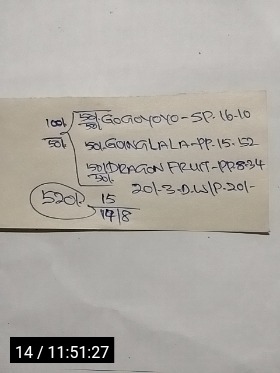 100/- 50/- GOGOYOYO-SP. 16-10
50/- 50/- GOINGLALA-PP. 15-152
150/- DRAGON FRUIT-PP.8-34
20/-3-D.W/P.20/-
520/- 15
14/8
14 / 11:51:27